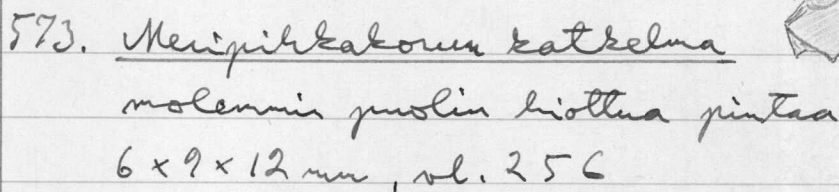 573. Meripihkakorun katkelma
molemmin puolin hiottua pintaa
6 x 9 x 12 mm, vl. 256